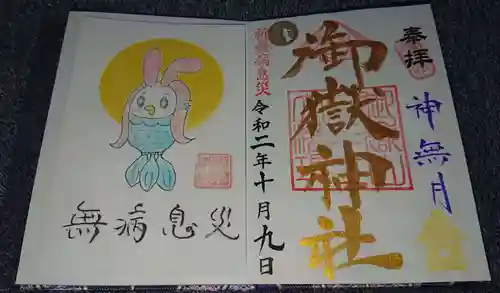 奉拝
神無月
御嶽神社
令和二年十月九日
無病息災
無病息災